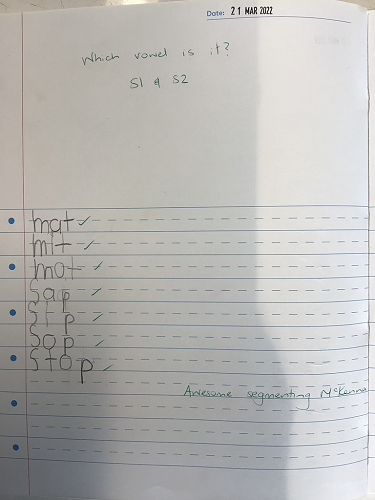 Date: 21 MAR 2022
Which vowel is it?
S1 & S2
mat ✓
mit ✓
mot ✓
sap ✓
sip ✓
sop ✓
stop ✓
Awesome segmenting McKenna